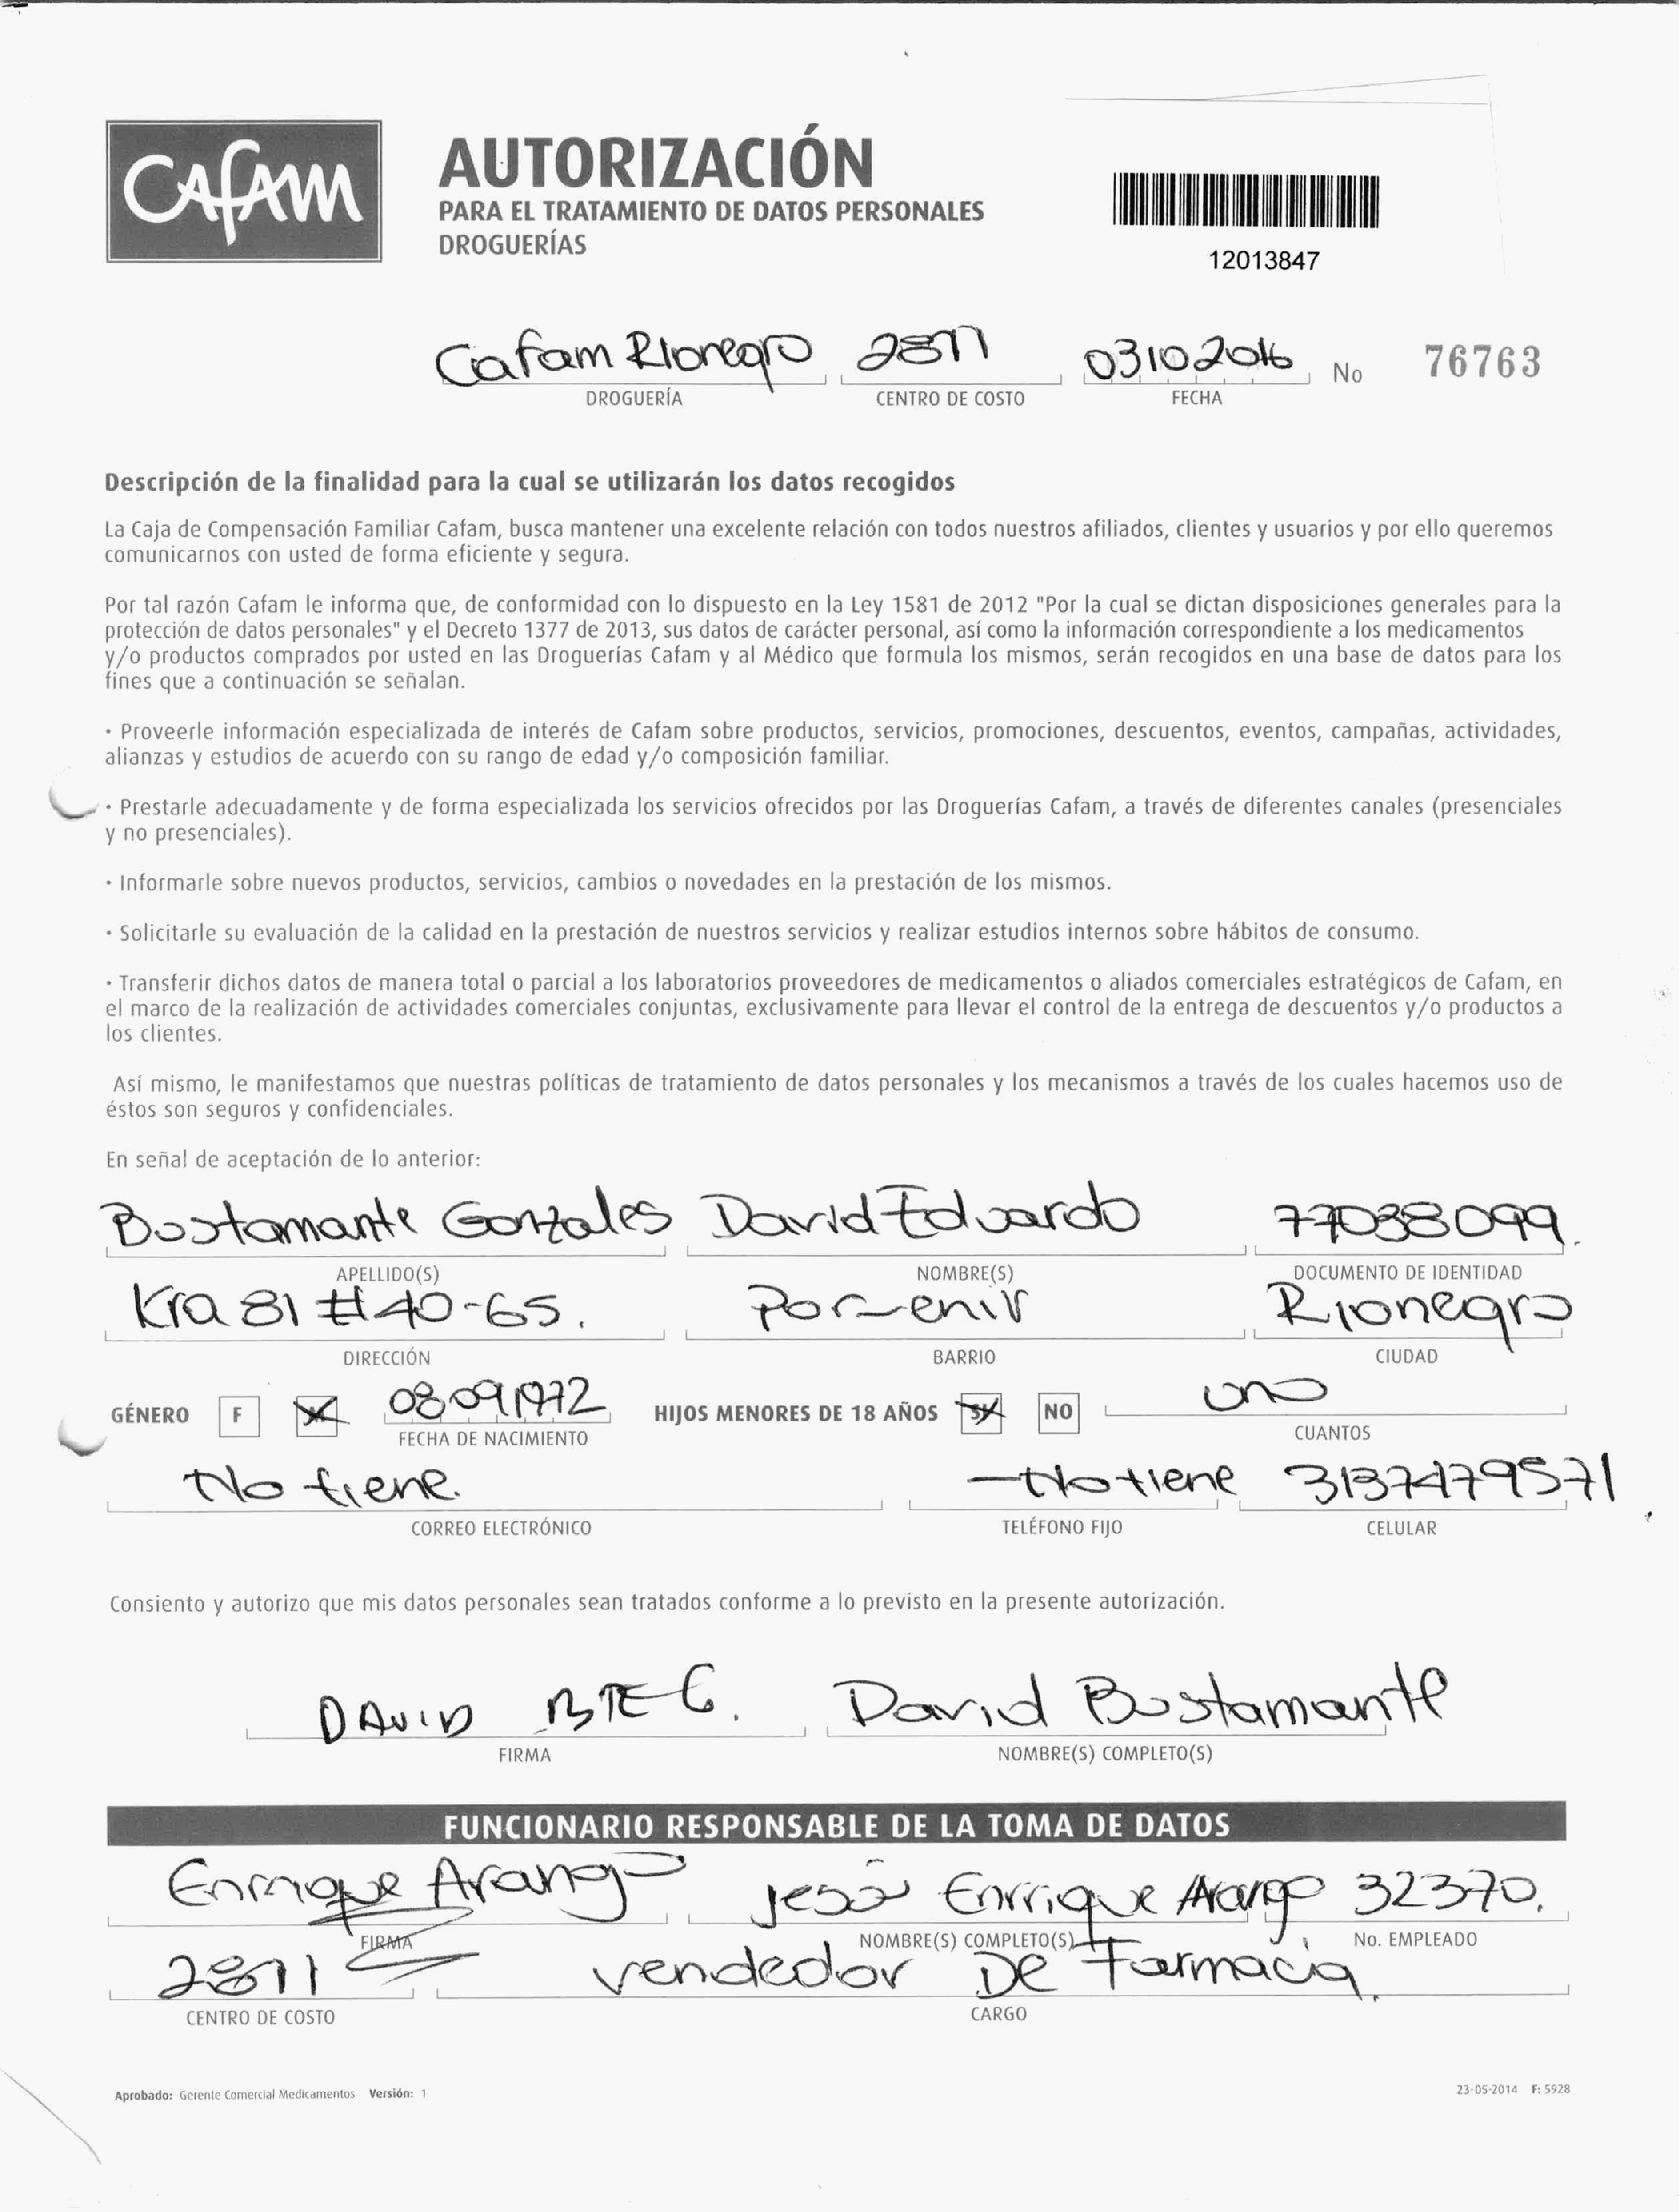 CAfAM
AUTORIZACIÓN
PARA EL TRATAMIENTO DE DATOS PERSONALES
DROGUERÍAS
12013847
Cafam Rionegro 2871 03102016 No 76763
DROGUERÍA CENTRO DE COSTO FECHA
Descripción de la finalidad para la cual se utilizarán los datos recogidos
La Caja de Compensación Familiar Cafam, busca mantener una excelente relación con todos nuestros afiliados, clientes y usuarios y por ello queremos
comunicarnos con usted de forma eficiente y segura.
Por tal razón Cafam le informa que, de conformidad con lo dispuesto en la Ley 1581 de 2012 "Por la cual se dictan disposiciones generales para la
protección de datos personales" y el Decreto 1377 de 2013, sus datos de carácter personal, así como la información correspondiente a los medicamentos
y/o productos comprados por usted en las Droguerías Cafam y al Médico que formula los mismos, serán recogidos en una base de datos para los
fines que a continuación se señalan.
· Proveerle información especializada de interés de Cafam sobre productos, servicios, promociones, descuentos, eventos, campañas, actividades,
alianzas y estudios de acuerdo con su rango de edad y/o composición familiar.
· Prestarle adecuadamente y de forma especializada los servicios ofrecidos por las Droguerías Cafam, a través de diferentes canales (presenciales
y no presenciales).
· Informarle sobre nuevos productos, servicios, cambios o novedades en la prestación de los mismos.
· Solicitarle su evaluación de la calidad en la prestación de nuestros servicios y realizar estudios internos sobre hábitos de consumo.
· Transferir dichos datos de manera total o parcial a los laboratorios proveedores de medicamentos o aliados comerciales estratégicos de Cafam, en
el marco de la realización de actividades comerciales conjuntas, exclusivamente para llevar el control de la entrega de descuentos y/o productos a
los clientes.
Así mismo, le manifestamos que nuestras políticas de tratamiento de datos personales y los mecanismos a través de los cuales hacemos uso de
éstos son seguros y confidenciales.
En señal de aceptación de lo anterior:
Bustamante Gonzales David Eduardo 77038099.
APELLIDO(S) NOMBRE(S) DOCUMENTO DE IDENTIDAD
Kra 81 #40-65. Porvenir Rionegro
DIRECCIÓN BARRIO CIUDAD
GÉNERO F M 08091972 HIJOS MENORES DE 18 AÑOS SI NO uno
FECHA DE NACIMIENTO CUANTOS
No tiene. - No tiene 3137479571
CORREO ELECTRÓNICO TELÉFONO FIJO CELULAR
Consiento y autorizo que mis datos personales sean tratados conforme a lo previsto en la presente autorización.
DAVID BTE G. David Bustamante
FIRMA NOMBRE(S) COMPLETO(S)
FUNCIONARIO RESPONSABLE DE LA TOMA DE DATOS
Enrique Arango Jesús Enrique Arango 32370.
FIRMA NOMBRE(S) COMPLETO(S) No. EMPLEADO
2871 vendedor De Farmacia.
CENTRO DE COSTO CARGO
Aprobado: Gerente Comercial Medicamentos Versión: 1 23-05-2014 F: 5928